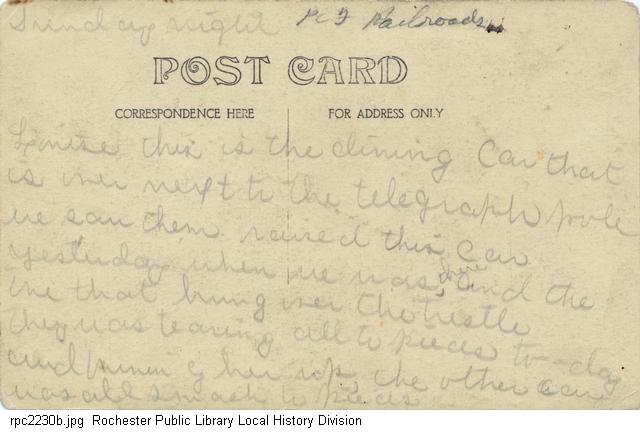 Sunday night
Rochester Railroads
POST CARD
CORRESPONDENCE HERE
FOR ADDRESS ONLY
Louise this is the dining Car that
is over next to the telegraph pole
we saw them raised this Car
yesterday when we was there and the
one that hung over the trestle
they was tearing all to pieces to-day
and burning her up, the other car
was all smash to pieces
rpc2230b.jpg Rochester Public Library Local History Division